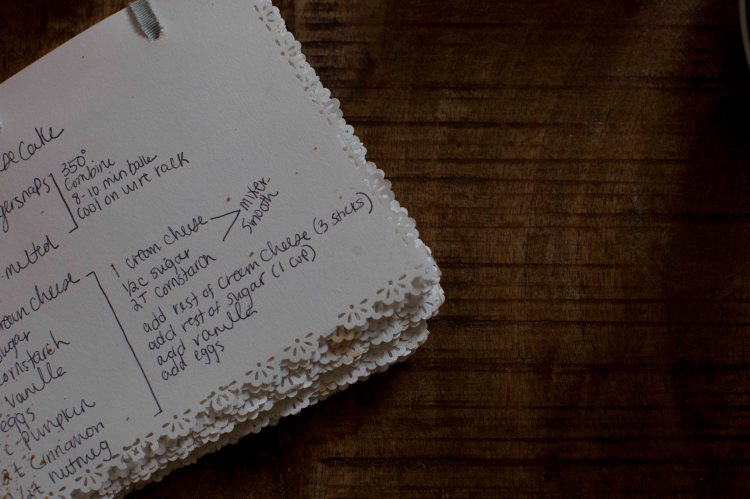 cake
gersnaps
350°
Combine
8-10 min bake
Cool on wire rack
melted
cream cheese
sugar
cornstarch
vanilla
eggs
c pumpkin
2t cinnamon
1/2t nutmeg
1 cream cheese
1/2c sugar
2T cornstarch
mixer
smooth
add rest of cream cheese (3 sticks)
add rest of sugar (1 cup)
add vanilla
add eggs